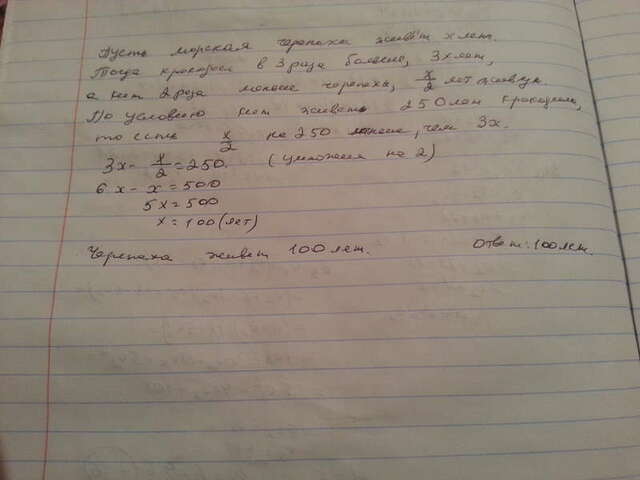 Пусть морская черепаха живёт x лет.
Тогда крокодил в 3 раза больше, 3x лет,
а кит 2 раза меньше черепахи, x/2 лет живут.
По условию кит живёт 250 лет крокодила,
то есть x/2 на 250 меньше, чем 3x.
3x - x/2 = 250. (умножим на 2)
6x - x = 500
5x = 500
x = 100 (лет)
Черепаха живёт 100 лет. Ответ: 100 лет.